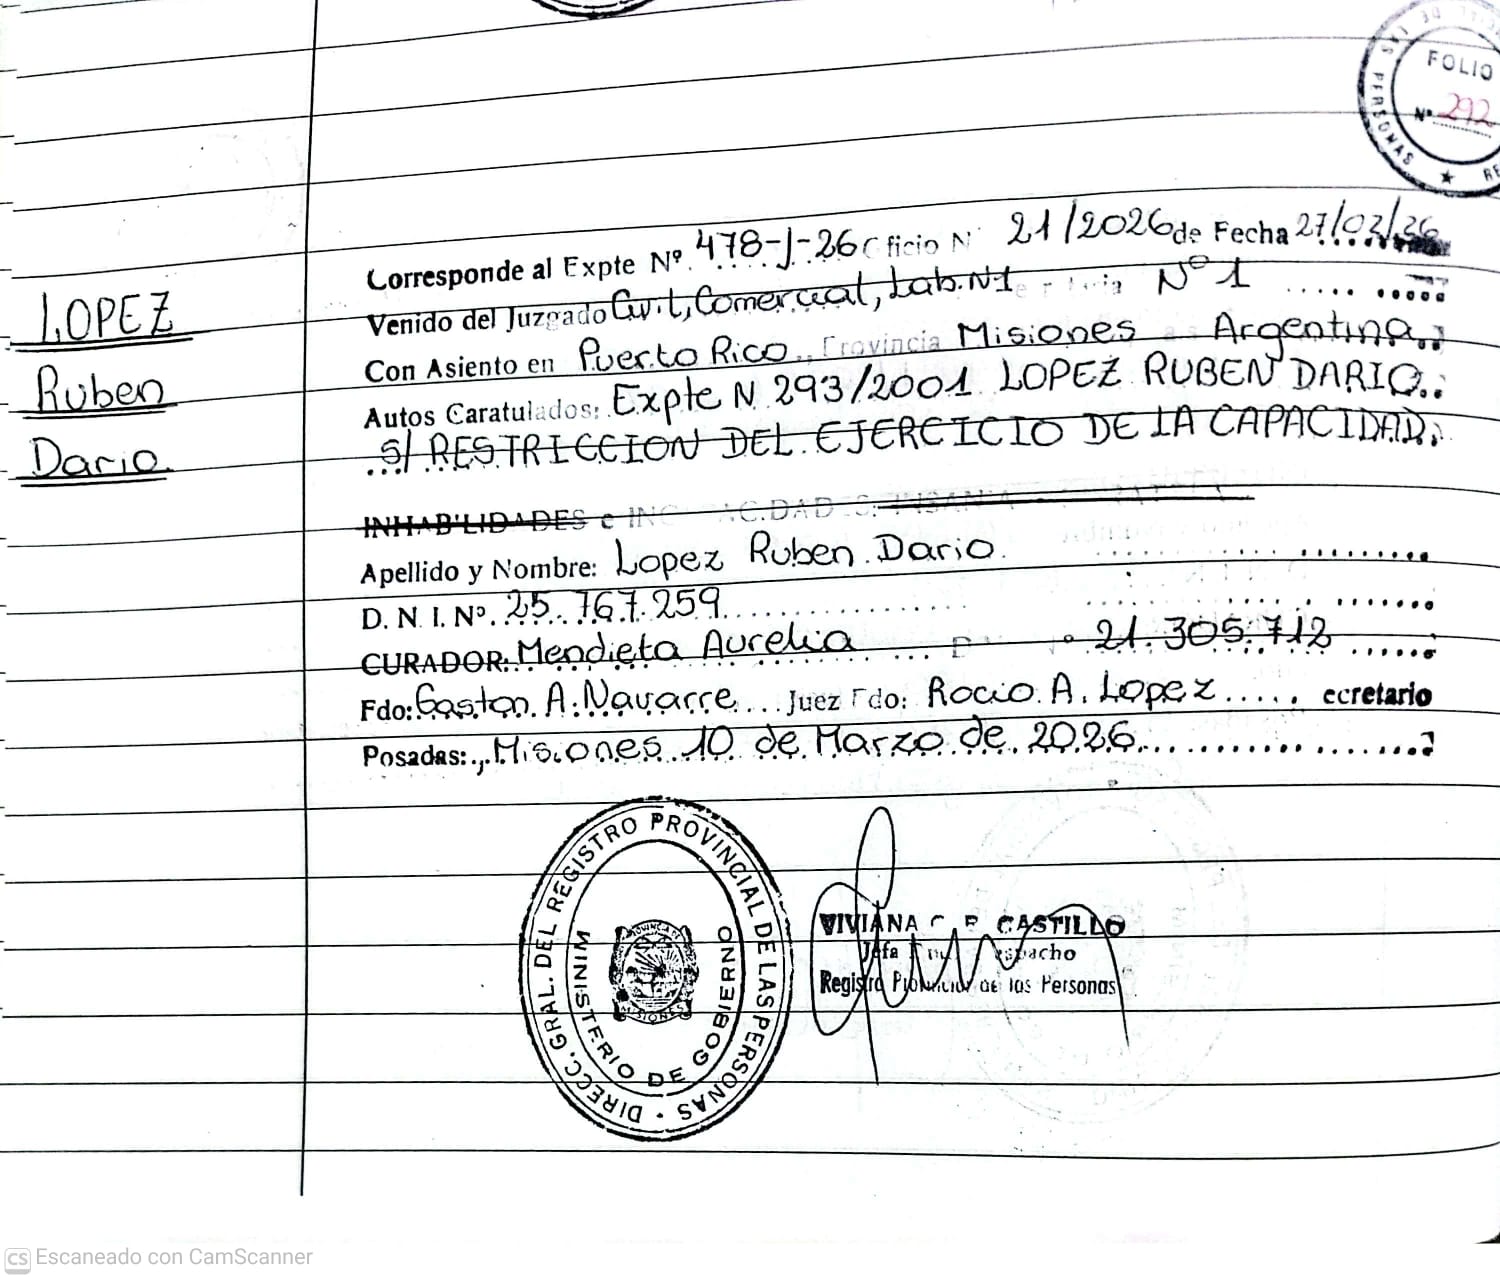 FOLIO
Nº 292
DE LAS PERSONAS
LOPEZ
Ruben
Dario
Corresponde al Expte Nº 478-J-26 ficio N 21/2026 de Fecha 27/02/26
Venido del Juzgado Civil, Comercial, Lab. Nº1 Nº 1
Con Asiento en Puerto Rico, Provincia Misiones Argentina
Autos Caratulados: Expte N 293/2001 LOPEZ RUBEN DARIO
S/ RESTRICCION DEL EJERCICIO DE LA CAPACIDAD
INHABILIDADES e
Apellido y Nombre: Lopez Ruben Dario
D. N. I. Nº 25.767.259
CURADOR: Mendieta Aurelia 21.305.712
Fdo: Gaston A. Navarre Juez Fdo: Rocio A. Lopez ecretario
Posadas: Misiones 10 de Marzo de 2026
DIRECC. GRAL. DEL REGISTRO PROVINCIAL DE LAS PERSONAS
MINISTERIO DE GOBIERNO
MISIONES
VIVIANA CASTILLO
Jefa
Registro Provincial de las Personas
CS Escaneado con CamScanner